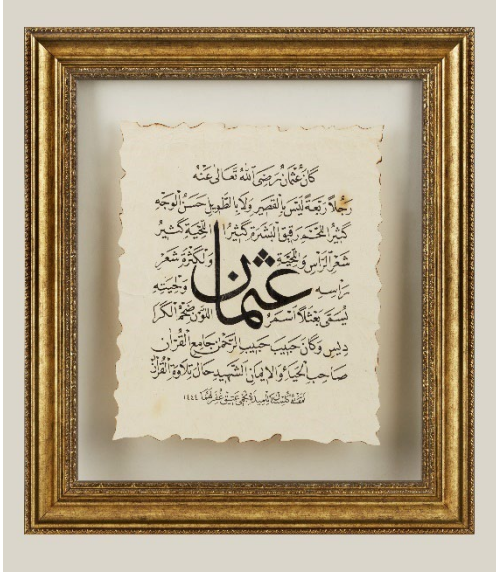 كَانَ عُثْمَانُ رَضِيَ اللهُ تَعَالٰى عَنْهُ
رَجُلاً رَبْعَةً لَيْسَ بِالْقَصِيرِ وَلَا بِالطَّوِيلِ حَسَنُ الْوَجْهِ
كَثِيرُ رَقِيقُ الْبَشَرَةِ كَثِيرُ اللِّحْيَةِ كَثِيرُ
شَعْرِ الرَّاسِ وَاللِّحْيَةِ وَلِكَثْرَةِ شَعْرِ
عثمان
رَاسِهِ وَلِحْيَتِهِ
يُسَمَّى نَعْثَلاً اَسْمَرُ اللَّوْنِ ضَخْمُ الْكَرَا
دِيسِ وَكَانَ حَبِيبَ حَبِيبِ الرَّحْمٰنِ جَامِعِ الْقُرْاٰنِ
صَاحِبِ الْحَيَاءِ وَالْاِيمَانِ الشَّهِيدِ حَالَ تِلَاوَةِ الْقُرْاٰنِ
١٤٤٤